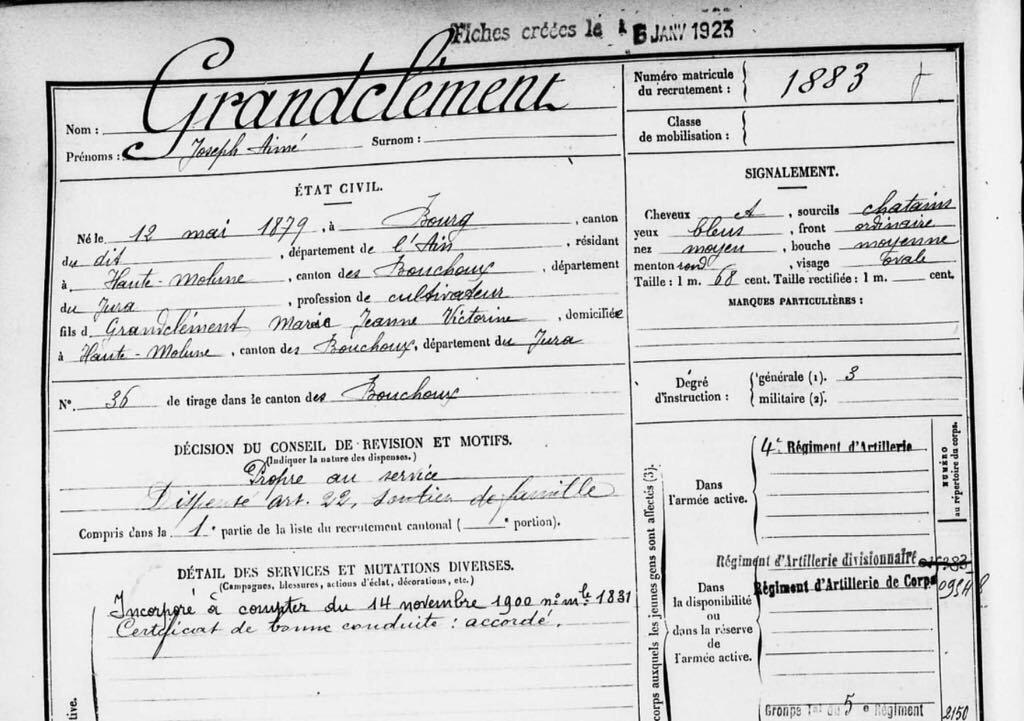 Fiches créées le 15 JANV 1923
Nom : Grandclément
Prénoms : Joseph Aimé Surnom :
ÉTAT CIVIL.
Né le 12 mai 1879, à Bourg, canton
du dit, département de l'Ain, résidant
à Haute-Molune, canton des Bouchoux, département
du Jura, profession de cultivateur
fils d Grandclément Marie Jeanne Victorine, domiciliée
à Haute-Molune, canton des Bouchoux, département du Jura
N° 36 de tirage dans le canton des Bouchoux
DÉCISION DU CONSEIL DE REVISION ET MOTIFS.
(Indiquer la nature des dispenses.)
Propre au service
Dispensé art. 22, soutien de famille
Compris dans la 1e partie de la liste du recrutement cantonal ( e portion).
DÉTAIL DES SERVICES ET MUTATIONS DIVERSES.
(Campagnes, blessures, actions d'éclat, décorations, etc.)
Incorporé à compter du 14 novembre 1900 n° mle 1831
Certificat de bonne conduite : accordé.
Numéro matricule
du recrutement : 1883
Classe
de mobilisation :
SIGNALEMENT.
Cheveux et, sourcils chatains
yeux bleus, front ordinaire
nez moyen, bouche moyenne
menton rond, visage ovale
Taille : 1 m. 68 cent. Taille rectifiée : 1 m. cent.
MARQUES PARTICULIÈRES :
Degré
d'instruction :
générale (1). 3
militaire (2).
corps auxquels les jeunes gens sont affectés (3).
NUMÉRO
au répertoire du corps.
Dans
l'armée active.
4e Régiment d'Artillerie
Régiment d'Artillerie divisionnaire
Régiment d'Artillerie de Corps
Dans
la disponibilité
ou
dans la réserve
de
l'armée active.
Groupe Tal du 5e Régiment 2150